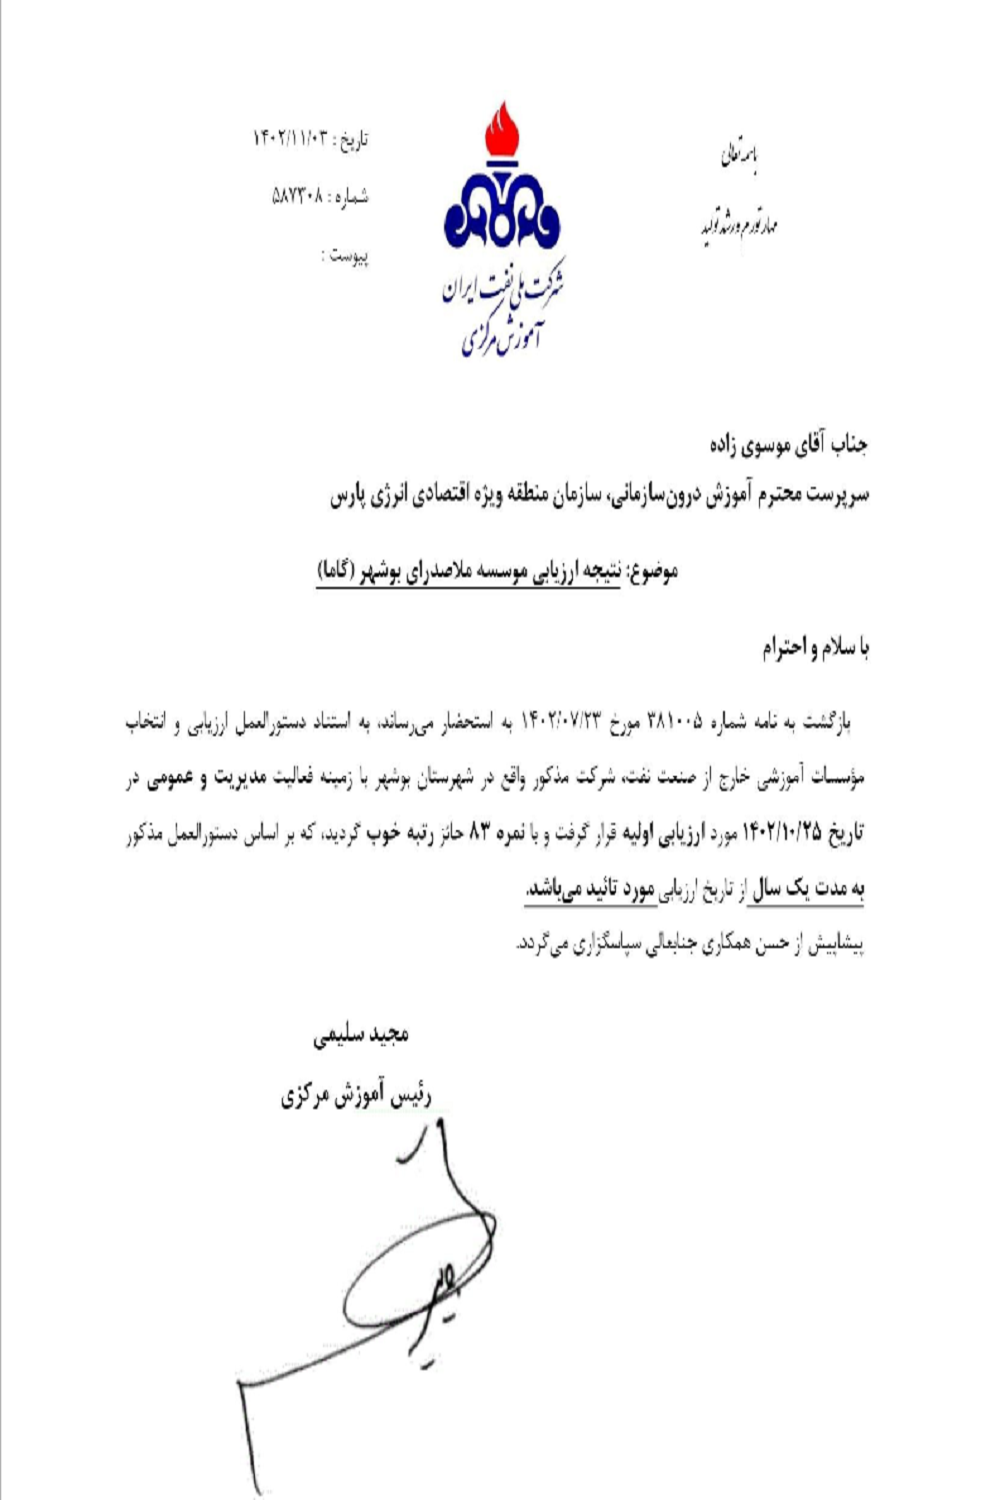 باسمه تعالی
مهار تورم و رشد تولید
تاریخ : ۱۴۰۲/۱۱/۰۳
شماره : ۵۸۷۳۰۸
پیوست :
شرکت ملی نفت ایران
آموزش مرکزی
جناب آقای موسوی زاده
سرپرست محترم آموزش درون‌سازمانی، سازمان منطقه ویژه اقتصادی انرژی پارس
موضوع: نتیجه ارزیابی موسسه ملاصدرای بوشهر (گاما)
با سلام و احترام
بازگشت به نامه شماره ۳۸۱۰۰۵ مورخ ۱۴۰۲/۰۷/۲۳ به استحضار می‌رساند، به استناد دستورالعمل ارزیابی و انتخاب
مؤسسات آموزشی خارج از صنعت نفت، شرکت مذکور واقع در شهرستان بوشهر با زمینه فعالیت مدیریت و عمومی در
تاریخ ۱۴۰۲/۱۰/۲۵ مورد ارزیابی اولیه قرار گرفت و با نمره ۸۳ حائز رتبه خوب گردید، که بر اساس دستورالعمل مذکور
به مدت یک سال از تاریخ ارزیابی مورد تائید می‌باشد.
پیشاپیش از حسن همکاری جنابعالی سپاسگزاری می‌گردد.
مجید سلیمی
رئیس آموزش مرکزی